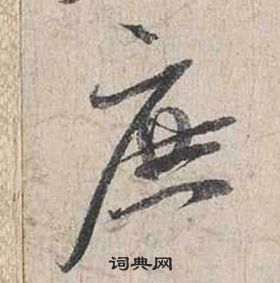 庶
词典网